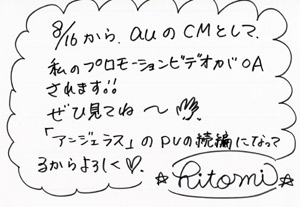 8/16から、auのCMとして、
私のプロモーションビデオがOA
されます!!
ぜひ見てね〜
「アンジェラス」のPVの続編になって
るからよろしく♡.
☆hitomi☆